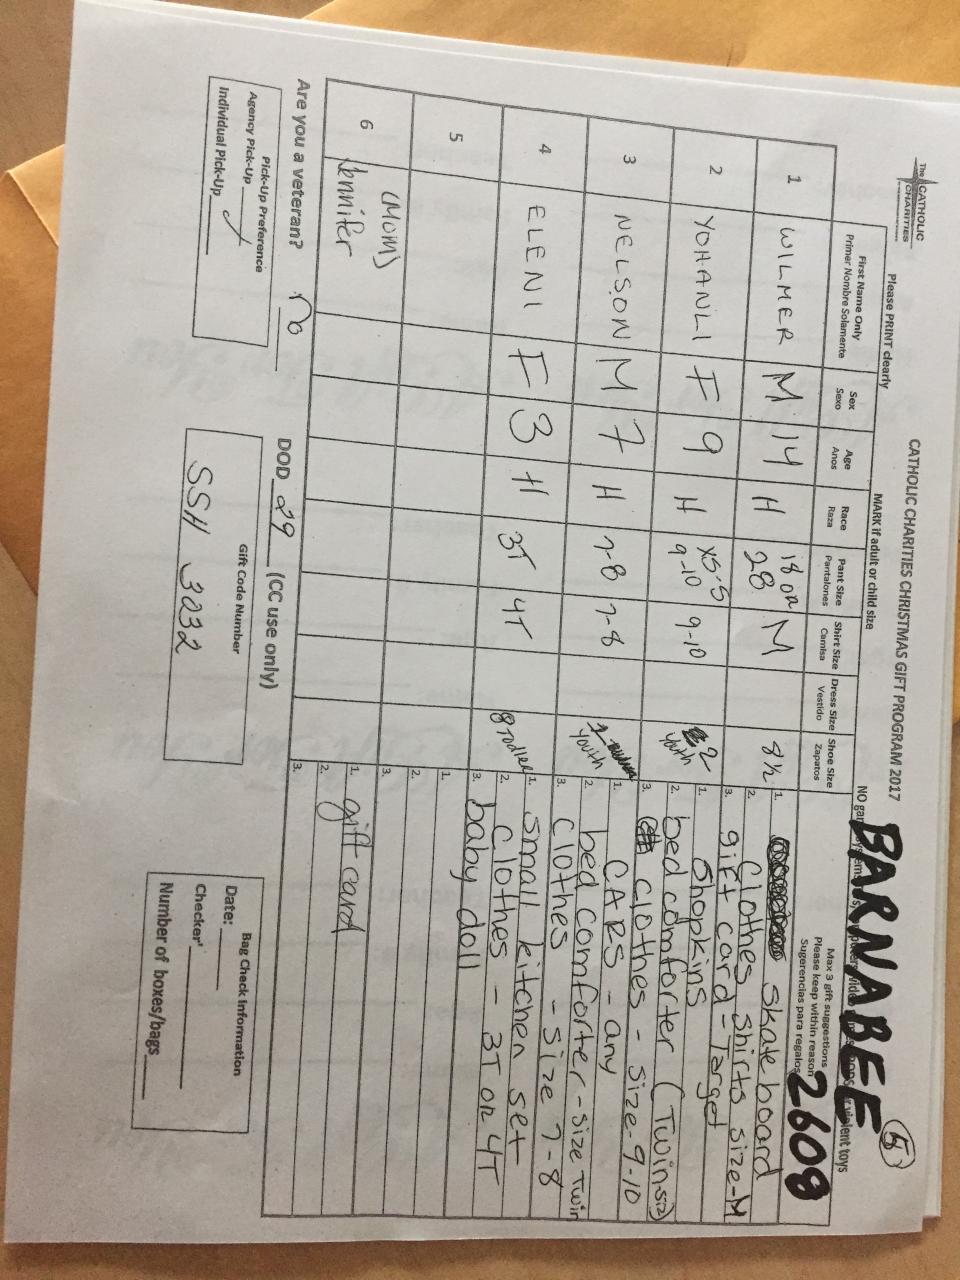 The CATHOLIC
CHARITIES
Please PRINT clearly
CATHOLIC CHARITIES CHRISTMAS GIFT PROGRAM 2017
BARNABEE
5
2608
MARK if adult or child size
NO violent toys
First Name Only
Primer Nombre Solamente
Sex
Sexo
Age
Anos
Race
Raza
Pant Size
Pantalones
Shirt Size
Camisa
Dress Size
Vestido
Shoe Size
Zapatos
Max 3 gift suggestions
Please keep within reason
Sugerencias para regalos
1 WILMER M 14 H 18 or 28 M 8½
1. Skateboard
2. Clothes shirts size-M
3. gift card - Target
2 YOHANLI F 9 H XS-S 9-10 9-10 2 Youth
1. Shopkins
2. bed comforter (Twin siz)
3. clothes - size 9-10
3 NELSON M 7 H 7-8 7-8 1 youth
1. CARS - any
2. bed comforter - size Twin
3. Clothes - size 7-8
4 ELENI F 3 H 3T 4T 8 Todler
1. small kitchen set
2. Clothes - 3T or 4T
3. baby doll
5
1.
2.
3.
6 (Mom)
Jennifer
1. gift card
2.
3.
Are you a veteran? no
DOD 29 (CC use only)
Pick-Up Preference
Agency Pick-Up
Individual Pick-Up
Gift Code Number
SSH 3032
Bag Check Information
Date:
Checker'
Number of boxes/bags